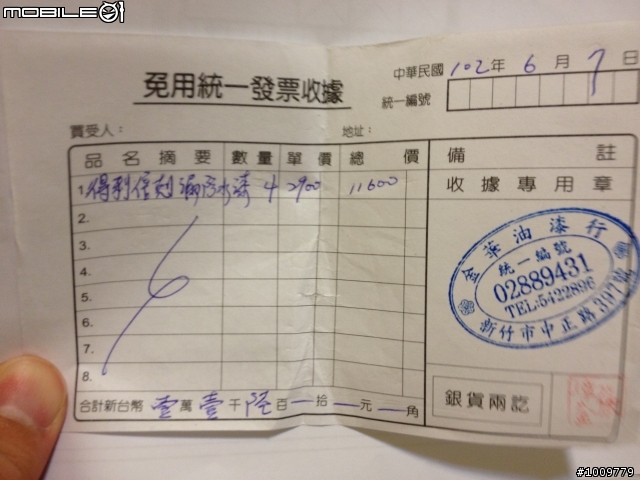 MOBILE01
免用統一發票收據
中華民國 102年 6月 7日
統一編號
買受人：
地址：
品名摘要 數量 單價 總價 備註
1. 得利 漆 4 2900 11600
收據專用章
2.
3.
4.
5.
6.
7.
8.
金華油漆行
統一編號
02889431
TEL:5422896
新竹市中正路397號
銀貨兩訖
合計新台幣 壹萬壹千陸百一拾一元一角
#1009779